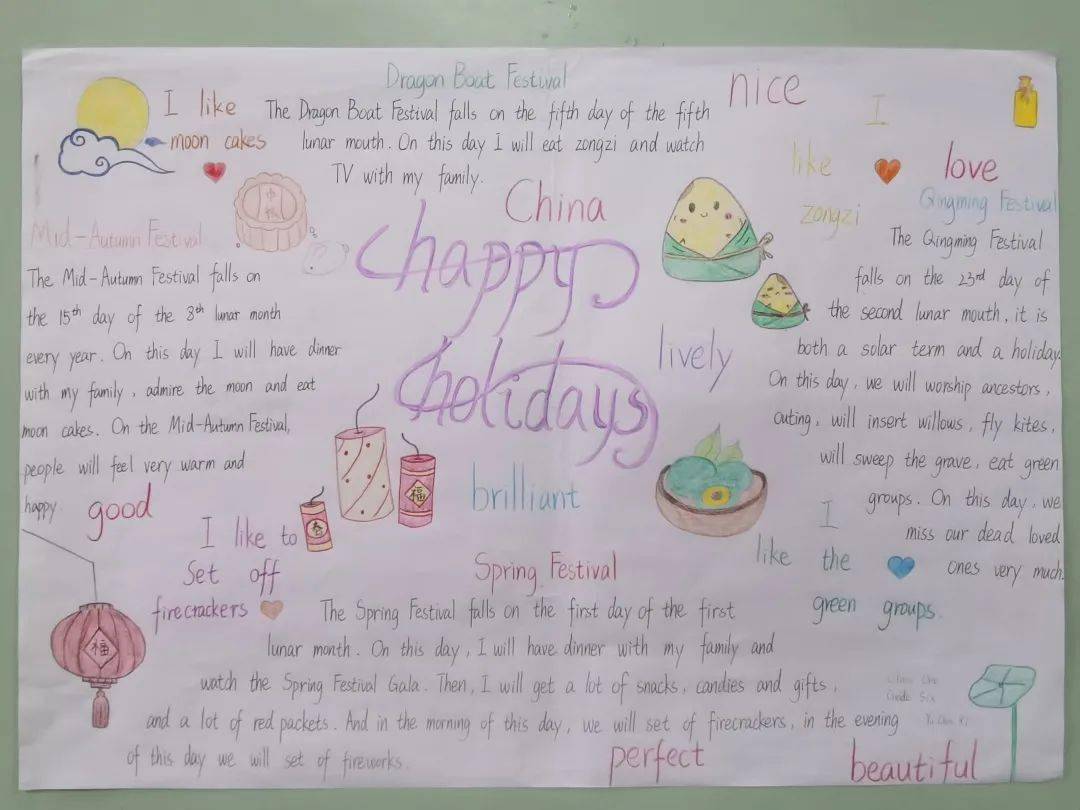 Dragon Boat Festival
The Dragon Boat Festival falls on the fifth day of the fifth
lunar mouth. On this day I will eat zongzi and watch
TV with my family.
nice
I like
moon cakes
中秋
China
I
like
zongzi
love
happy
holidays
Mid-Autumn Festival
The Mid-Autumn Festival falls on
the 15th day of the 8th lunar month
every year. On this day I will have dinner
with my family, admire the moon and eat
moon cakes. On the Mid-Autumn Festival,
people will feel very warm and
happy
good
Qingming Festival
The Qingming Festival
falls on the 23rd day of
the second lunar mouth, it is
both a solar term and a holiday.
On this day, we will worship ancestors,
outing, will insert willows, fly kites,
will sweep the grave, eat green
groups. On this day, we
miss our dead loved
ones very much.
lively
brilliant
福
春
I like to
Set off
firecrackers
I
like the
green groups.
福
Spring Festival
The Spring Festival falls on the first day of the first
lunar month. On this day, I will have dinner with my family and
watch the Spring Festival Gala. Then, I will get a lot of snacks, candies and gifts,
and a lot of red packets. And in the morning of this day, we will set of firecrackers, in the evening
of this day we will set of fireworks.
Class One
Grade Six
perfect
beautiful